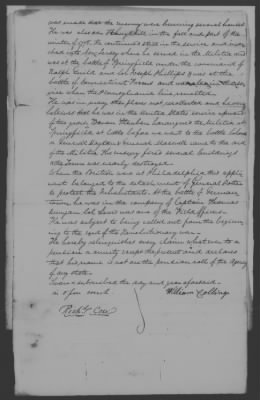 and made that the enemy were burning several houses
He was also at in the fall and part of the
winter of 1776. He continued still in the service and
into New Jersey where he served in the Militia and
was at the battle of Springfield under the command of
Ralph and Col Joseph Phillips & was at the
battle of Connecticut Farms and
year when the Pennsylvania line revolted
He was in every other place not recollected and having
believes that he was in the United States service upwards
of two years
Springfield a little before we went to the battle
a General Dayton & General Maxwell came to the aid
of the Militia. The enemy fired several buildings &
the Town was nearly destroyed.
When the British was at Philadelphia this appli
cant belonged to the detachment of General Potter
to protect the Inhabitants. At the battle of German
town, he was in the company of Captain Thomas
Col was one of the Field officers.
He was subject to being called out from the beginn
ing to the end of the Revolutionary war.
He hereby relinquishes every claim whatever to a
pension or annuity except the present and declares
that his name is not on the pension roll of the Agency
of any state.
Sworn & subscribed the day and year aforesaid
in open court. William Collings
Rich. F. Cox